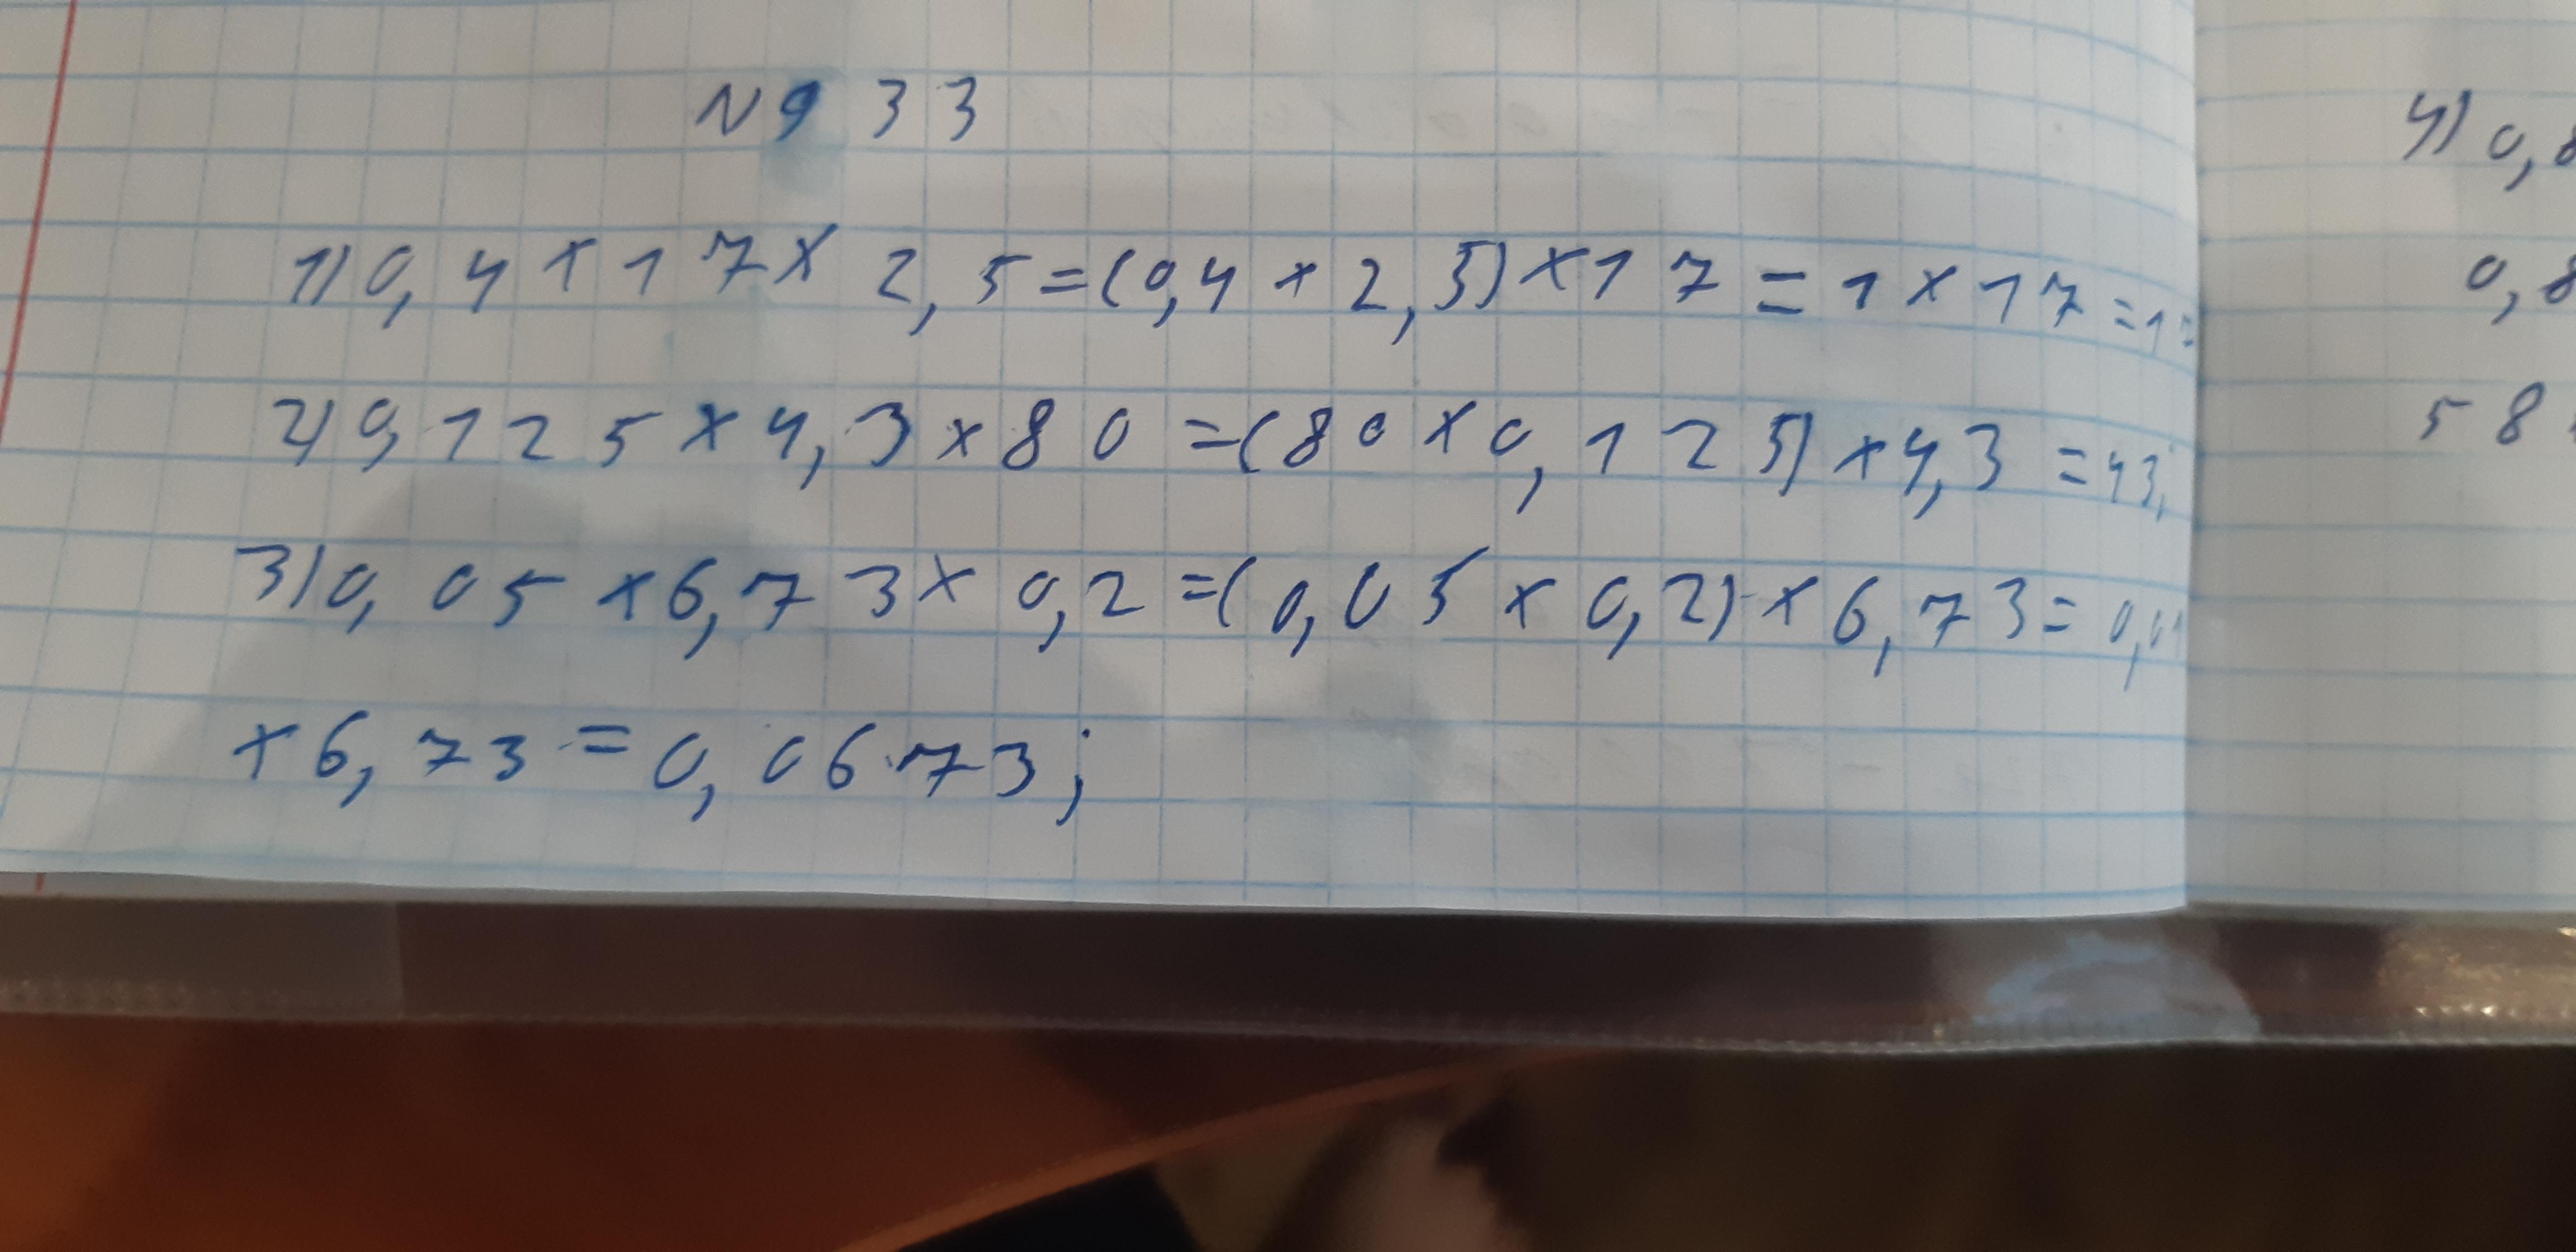 N933
1) 0,4 × 17 × 2,5 = (0,4 × 2,5) × 17 = 1 × 17 = 17
2) 0,125 × 4,3 × 80 = (80 × 0,125) × 4,3 = 43;
3) 0,05 × 6,73 × 0,2 = (0,05 × 0,2) × 6,73 = 0,01
× 6,73 = 0,0673;
4) 0,8
0,8
58